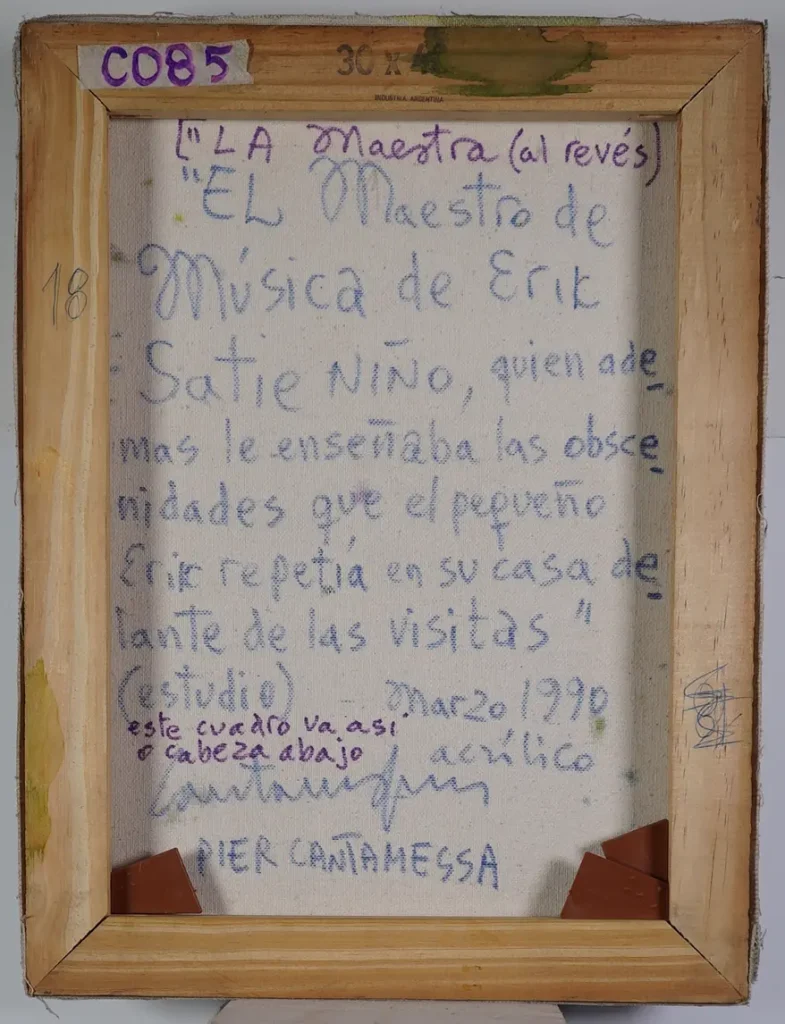 C085
30 x 4
INDUSTRIA ARGENTINA
["LA Maestra (al revés)
"EL Maestro de
Música de Erik
18
Satie NIÑO, quien ade
mas le enseñaba las obsce
nidades que el pequeño
Erik repetía en su casa de
lante de las visitas"
(estudio) - Marzo 1990
este cuadro va así
o cabeza abajo
acrílico
Cantamessa
PIER CANTAMESSA